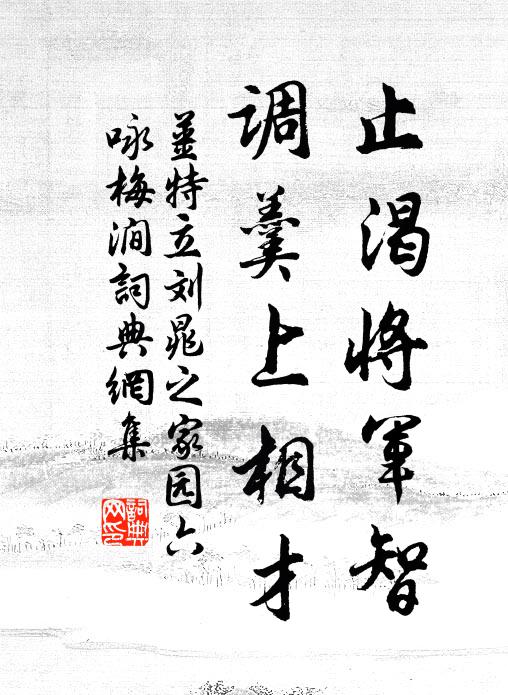 止渴将军智
调羹上相才
姜特立刘晁之家园六
咏梅涧詞典網集
詞典
网印